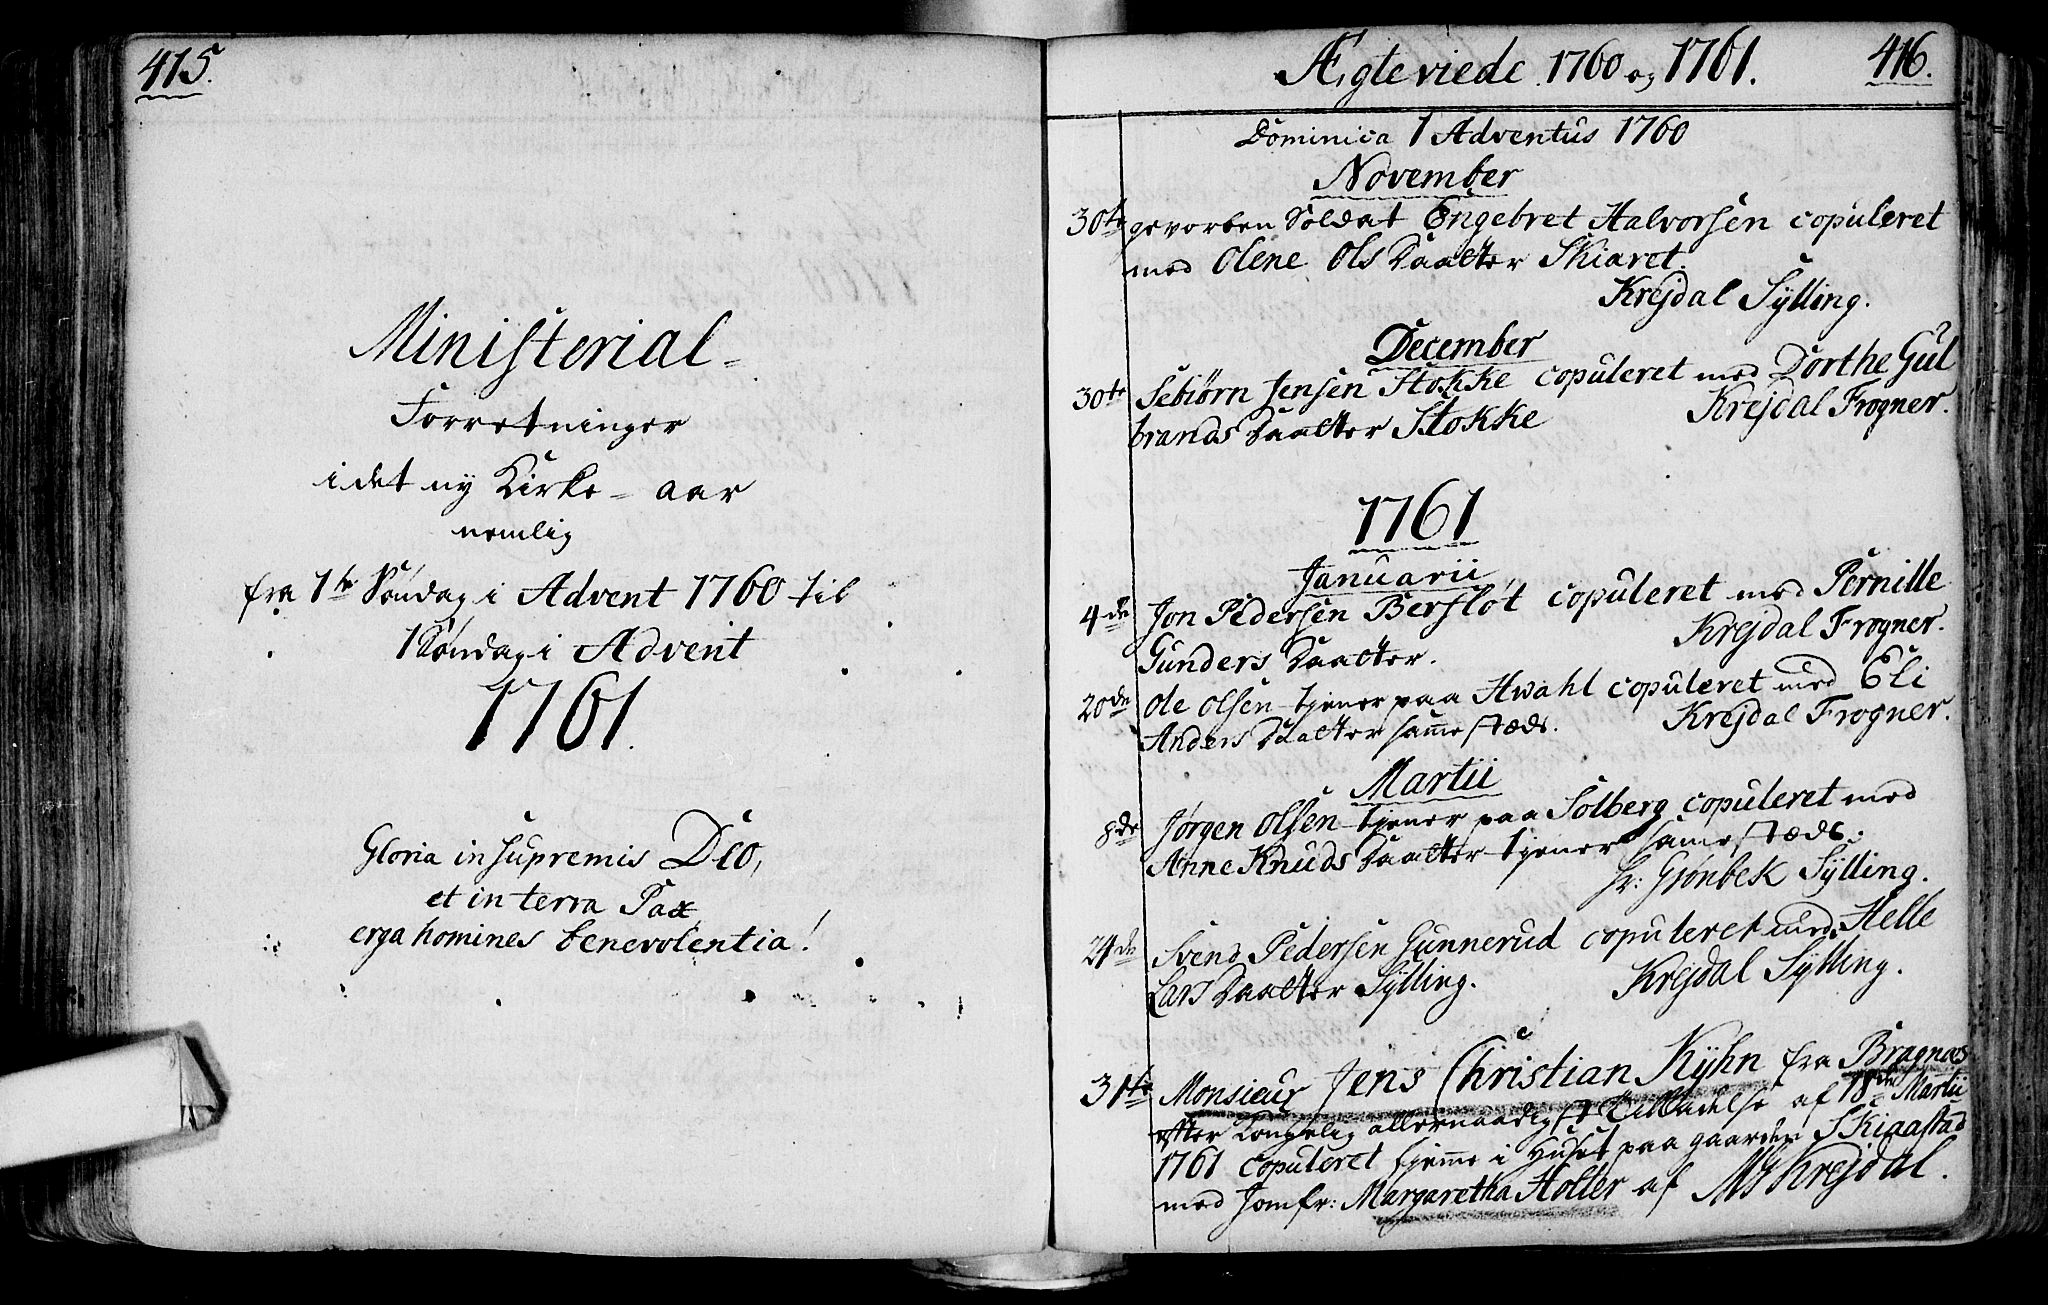 415.
Ministerial-
Forretninger
i det ny Kirke-aar
nemlig
fra 1te Søndag i Advent 1760 til
1 Søndag i Advent
1761.
Gloria in supremis Deo,
et in terra Pax
erga homines benevolentia!
Ægteviede 1760 og 1761.
416.
Dominica 1 Adventus 1760
November
30te gevorben Soldat Engebret Halvorsen copuleret
med Olene Ols Daatter Skiaret.
Krejdal Sylling.
December
30te Sebiørn Jensen Stokke copuleret med Dorthe Gul
brands Daatter Stokke
Krejdal Frogner.
1761
Januarii
4de Jon Pedersen Bersløt copuleret med Pernille
Gunders Daatter.
Krejdal Frogner.
20de Ole Olsen tjener paa Hwahl copuleret med Eli
Anders Daatter samestæds.
Krejdal Frogner.
Martii
8de Jørgen Olsen tjener paa Solberg copuleret med
Anne Knuds Daatter tjener samestæds.
Hr: Grønbek Sylling.
24de Svend Pedersen Gunnerud copuleret med Helle
Lars Daatter Sylling.
Krejdal Sylling.
31te Monsieur Jens Christian Kyhn fra Bragnæs
efter Kongelig allernaadigst Tilladelse af 18de Martii
1761 copuleret hjeme i Huset paa gaarden Skiaastad
med Jomfr: Margaretha Holter af Mg Krejdal.